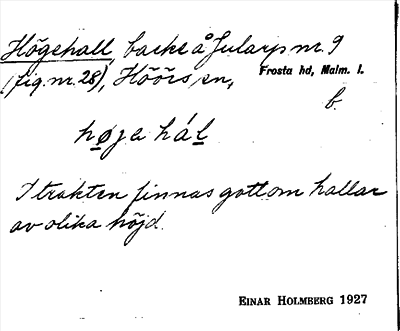 Högehall, backe å Jularp nr. 9
(fig. nr. 28), Höörs sn,
Frosta hd, Malm. l.
b.
høja hál
I trakten finnas gott om hallar
av olika höjd.
EINAR HOLMBERG 1927